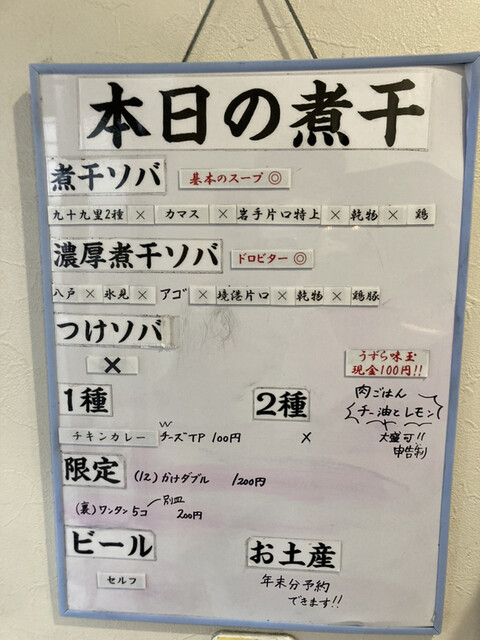 本日の煮干
煮干ソバ 基本のスープ ◎
九十九里2種 × カマス × 岩手片口特上 × 乾物 × 鶏
濃厚煮干ソバ ドロビター ◎
八戸 × 氷見 × アゴ × 境港片口 × 乾物 × 鶏豚
つけソバ
×
うずら味玉
現金100円!!
1種
チキンカレー チーズTP 100円
2種
×
肉ごはん
チー油とレモン
大盛可!!
申告制
限定 (12) かけダブル 1200円
(裏) ワンタン5コ 別皿 200円
ビール
セルフ
お土産
年末分予約
できます!!